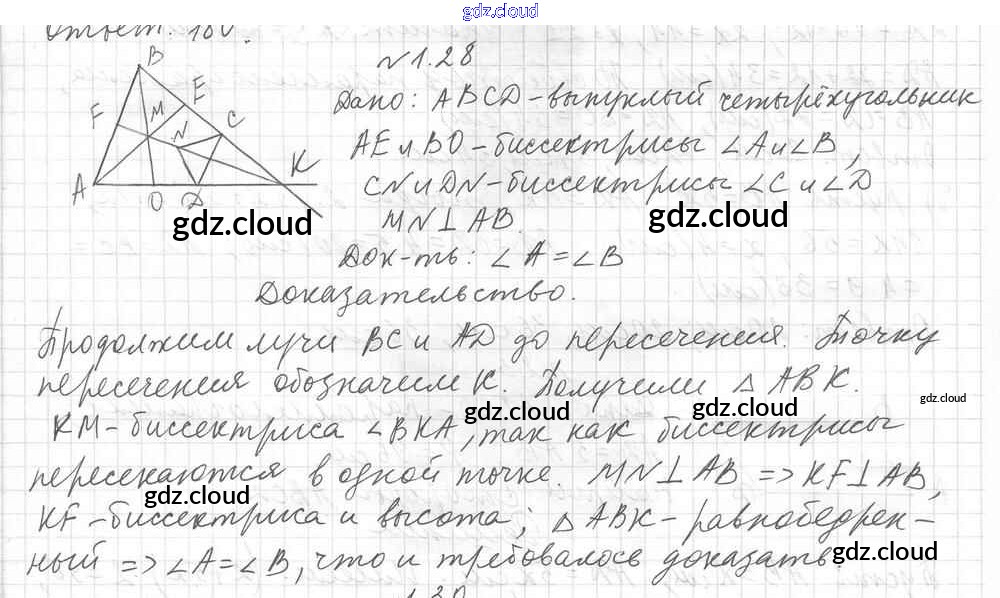 gdz.cloud
Ответ: 180°.
N1.28
B
F
M
E
N
C
K
A
O
D
Дано: ABCD - выпуклый четырёхугольник
AE и BO - биссектрисы ∠A и ∠B,
CN и DN - биссектрисы ∠C и ∠D
gdz.cloud
gdz.cloud
MN⊥AB.
Док-ть: ∠A = ∠B
Доказательство.
Продолжим лучи BC и AD до пересечения. Точку
пересечения обозначим K. Получили △ ABK.
gdz.cloud
gdz.cloud
gdz.cloud
KM - биссектриса ∠BKA, так как биссектрисы
пересекаются в одной точке. MN⊥AB => KF⊥AB,
gdz.cloud
KF - биссектриса и высота; △ ABK - равнобедрен-
ный => ∠A = ∠B, что и требовалось доказать.
gdz.cloud